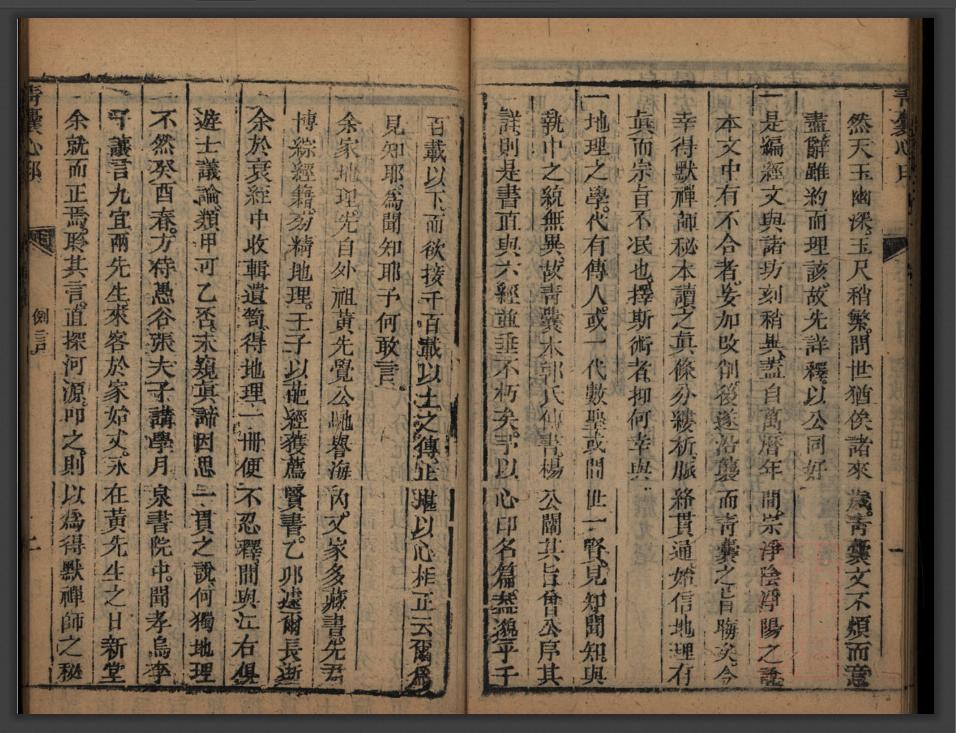 然天玉幽深玉尺稍繁問世猶俟諸來歲青囊文不煩而意
盡辭雖約而理該故先詳釋以公同好
一是編經文與諸坊刻稍異蓋自萬曆年間宗淨陰淨陽之說
本文中有不合者妄加改削後遂沿襲而青囊之旨晦矣今
幸得默禪師秘本讀之眞條分縷析脈絡貫通始信地理有
眞而宗旨不泯也擇斯術者抑何幸與
一地理之學代有傳人或一代數聖或間世一賢見知聞知與
執中之統無異故青囊本郭氏傳書楊公闡其旨曾公序其
詳則是書直與六經並垂不朽矣予以心印名篇蓋邈乎千
百載以下而欲接千百載以上之傳並堪以心相正云爾爲
見知耶爲聞知耶予何敢言
余家地理先自外祖黃先覺公馳譽海內父家多藏書先君
博綜經籍旁精地理壬子以葩經獲薦賢書乙卯遽爾長逝
余於哀經中收輯遺笥得地理一冊便不忍釋間與江右俱
遊士議論類甲可乙否未窺眞諦因思一貫之說何獨地理
不然癸酉春方待愚谷張夫子講學月泉書院中聞孝烏李
平議言九宜兩先生來客於家始丈永在黃先生之日新堂
余就而正焉聆其言直探河源叩之則以爲得默禪師之秘
青囊心印
例言
一
青囊心印
二